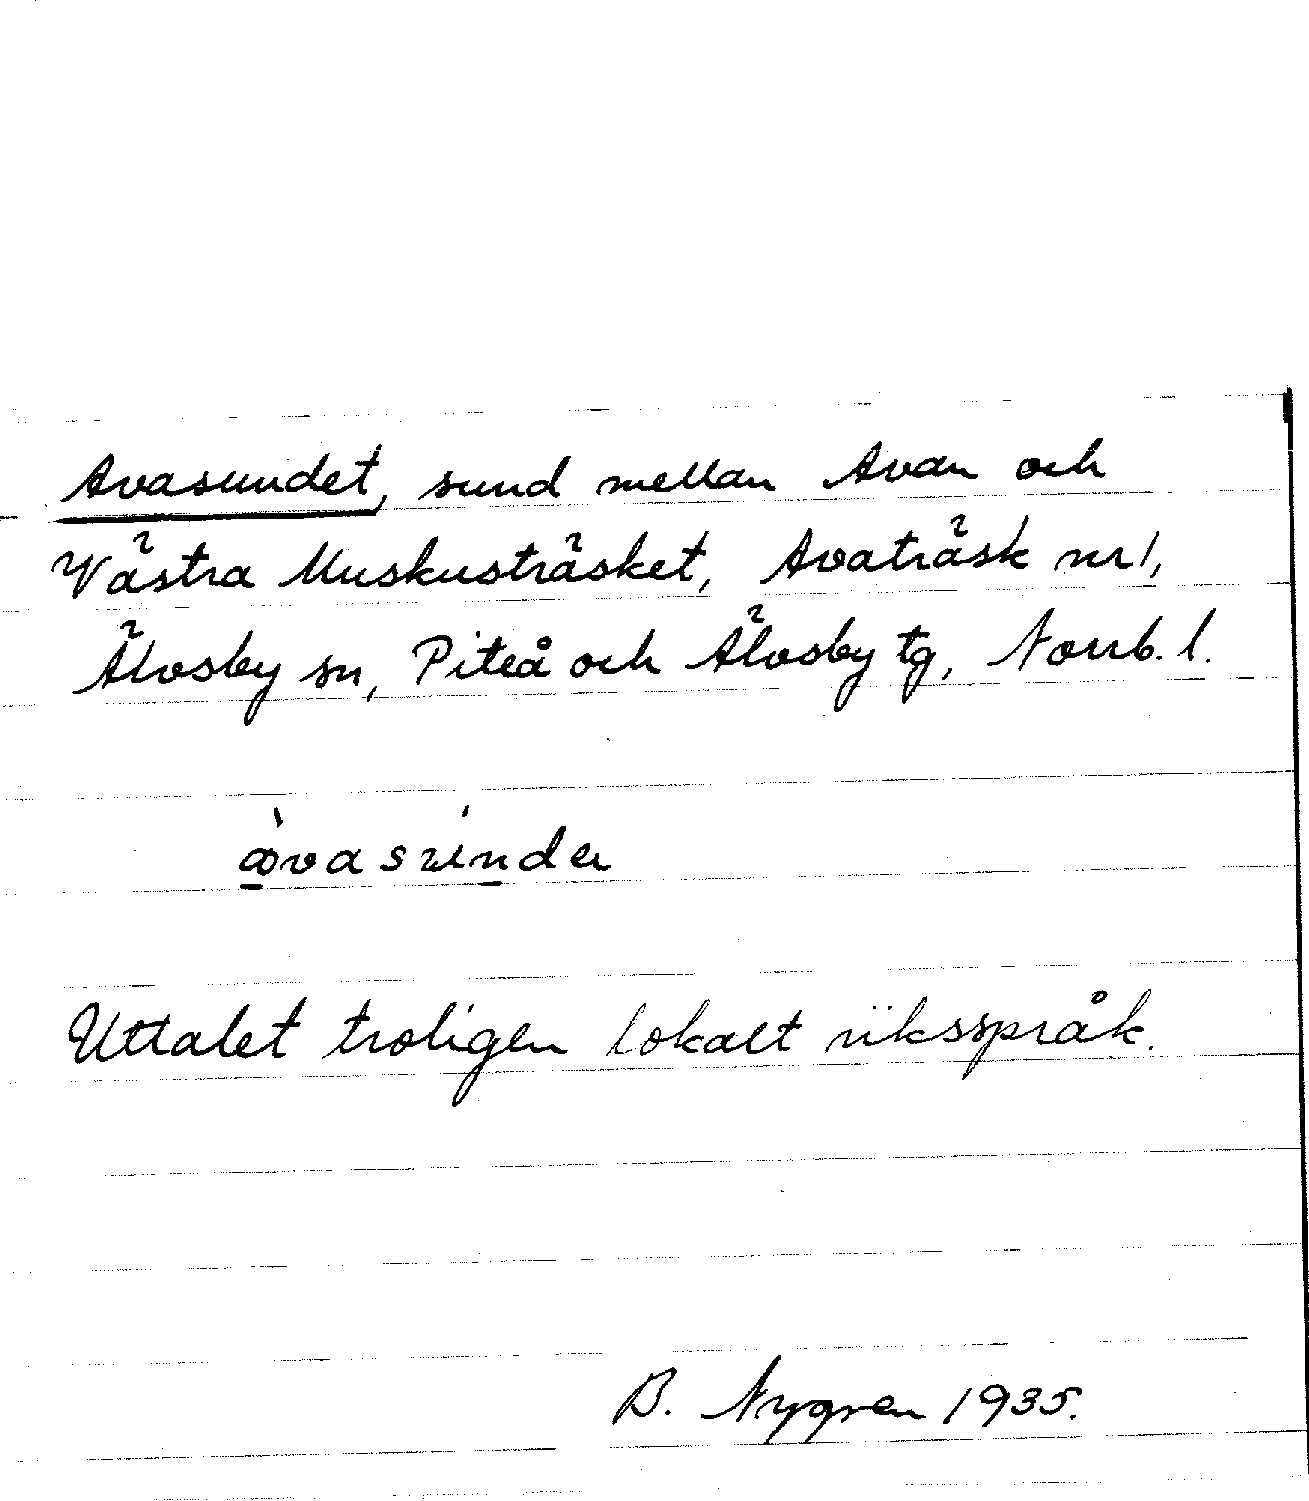 Avasundet, sund mellan Avan och
Västra Muskusträsket, Avaträsk nr 1,
Älvsby sn, Piteå och Älvsby tg, Norrb. l.
Uttalet troligen lokalt riksspråk.
B. Nygren 1935.